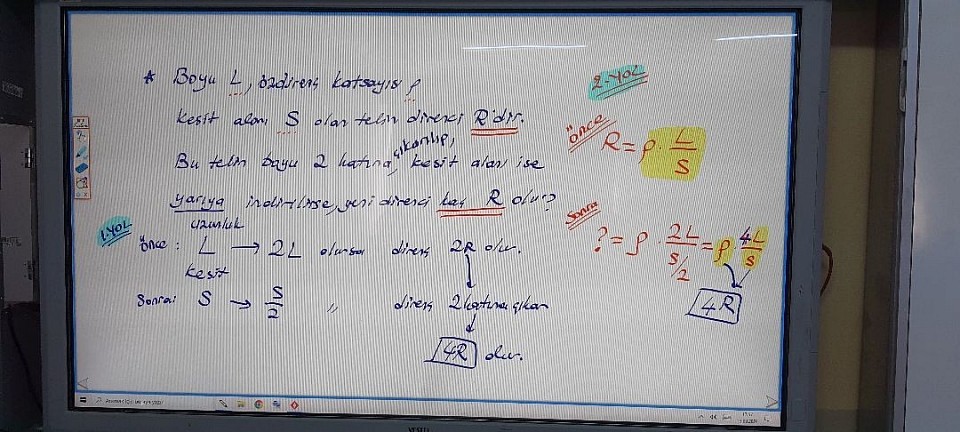 * Boyu L, özdirenç katsayısı ρ
kesit alanı S olan telin direnci R'dir.
Bu telin boyu 2 katına çıkarılıp, kesit alanı ise
yarıya indirilirse, yeni direnci kaç R olur?
1.YOL
uzunluk
Önce: L → 2L olursa direnç 2R olur.
kesit
Sonra: S → S/2 " direnç 2 katına çıkar
4R olur.
2-YOL
Önce
R = ρ · L/S
Sonra
? = ρ · 2L/S/2 = ρ 4L/S
4R